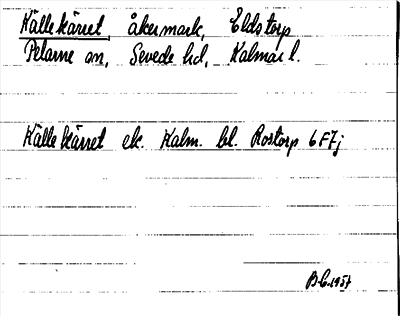 Källekärret, åkermark, Eldstorp
Pelarne sn, Sevede hd, Kalmar l.
Källekärret ek. Kalm. bl. Rostorp 6F7j
B-C. 1957